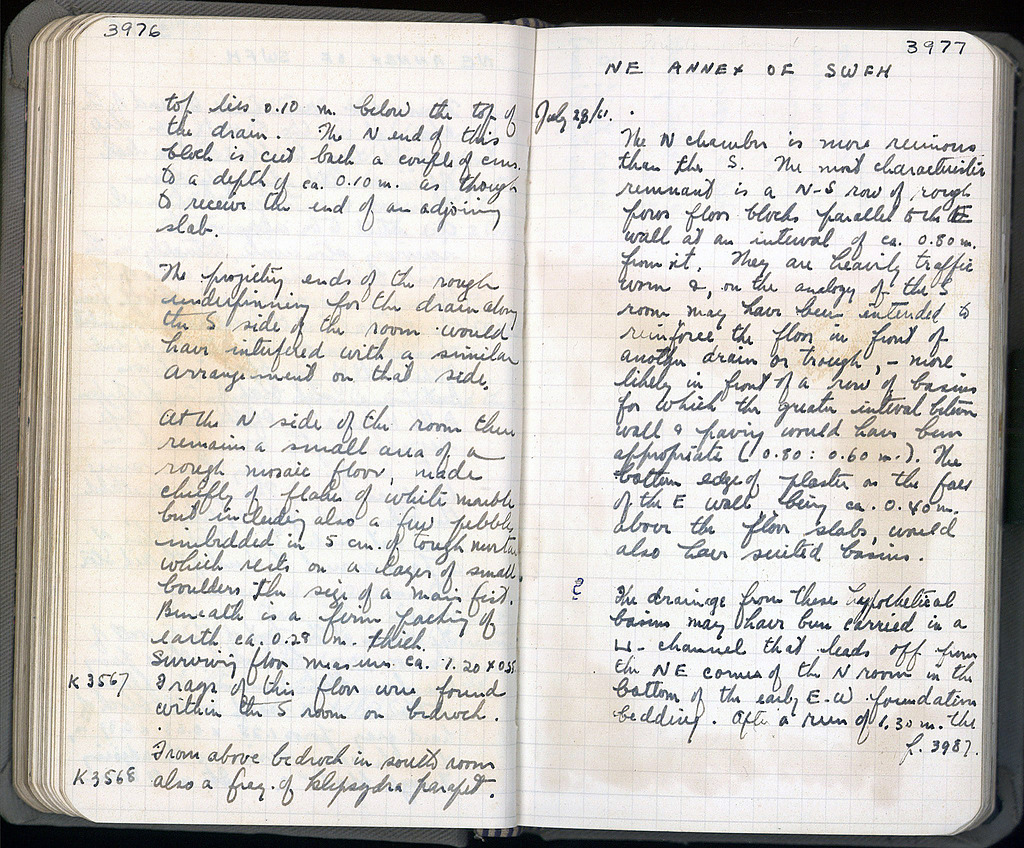 3976
top lies 0.10 m. below the top of
the drain. The N end of this
block is cut back a couple of cms.
to a depth of ca. 0.10 m. as though
to receive the end of an adjoining
slab.
The projecting ends of the rough
underpinning for the drain along
the S side of the room would
have interfered with a similar
arrangement on that side.
At the N side of the room there
remains a small area of a
rough mosaic floor, made
chiefly of flakes of white marble
but including also a few pebbles
imbedded in 5 cm. of tough mortar
which rests on a layer of small
boulders the size of a man's fist.
Beneath is a firm packing of
earth ca. 0.28 m. thick.
Surviving floor measures ca. 1.20 x
K 3567 Frags of this floor were found
within the S room on bedrock.
From above bedrock in south room
K 3568 also a frag. of klepsydra parapet.
3977
NE ANNEX OF SWFH
July 28/61.
The N chamber is more ruinous
than the S. The most characteristic
remnant is a N-S row of rough
poros floor blocks parallel to the E
wall at an interval of ca. 0.80 m.
from it. They are heavily traffic
worn &, on the analogy of the S
room may have been intended to
reinforce the floor in front of
another drain or trough, - more
likely in front of a row of basins
for which the greater interval between
wall & paving would have been
appropriate (0.80 : 0.60 m.). The
bottom edge of plaster on the face
of the E wall, being ca. 0.40 m.
above the floor slabs, would
also have suited basins.
? The drainage from these hypothetical
basins may have been carried in a
⊔-channel that leads off from
the NE corner of the N room in the
bottom of the early E-W foundation
bedding. After a run of 1.30 m. the
p. 3987.